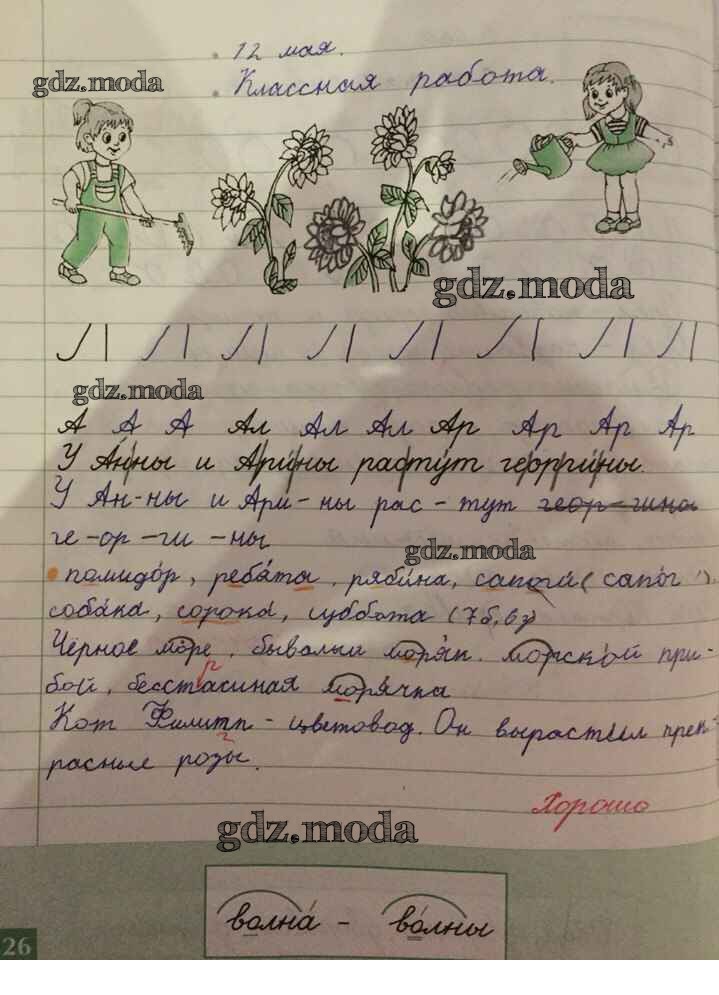 12 мая.
gdz.moda
Классная работа.
gdz.moda
gdz.moda
А А А Ал Ал Ал Ар Ар Ар Ар
У Анны и Арины растут георгины.
У Ан-ны и Ари-ны рас-тут геор-гина
ге-ор-ги-ны
gdz.moda
помидор, ребята, рябина, сапоги (сапог).
собака, сорока, суббота (7б, 6з)
Чёрное море, бывалый моряк, морской при-
бой, бесстасиная морячка
р
Кот Филипп - цветовод. Он вырастил прек-
расные розы.
г
Хорошо
gdz.moda
волна́ - во́лны
26